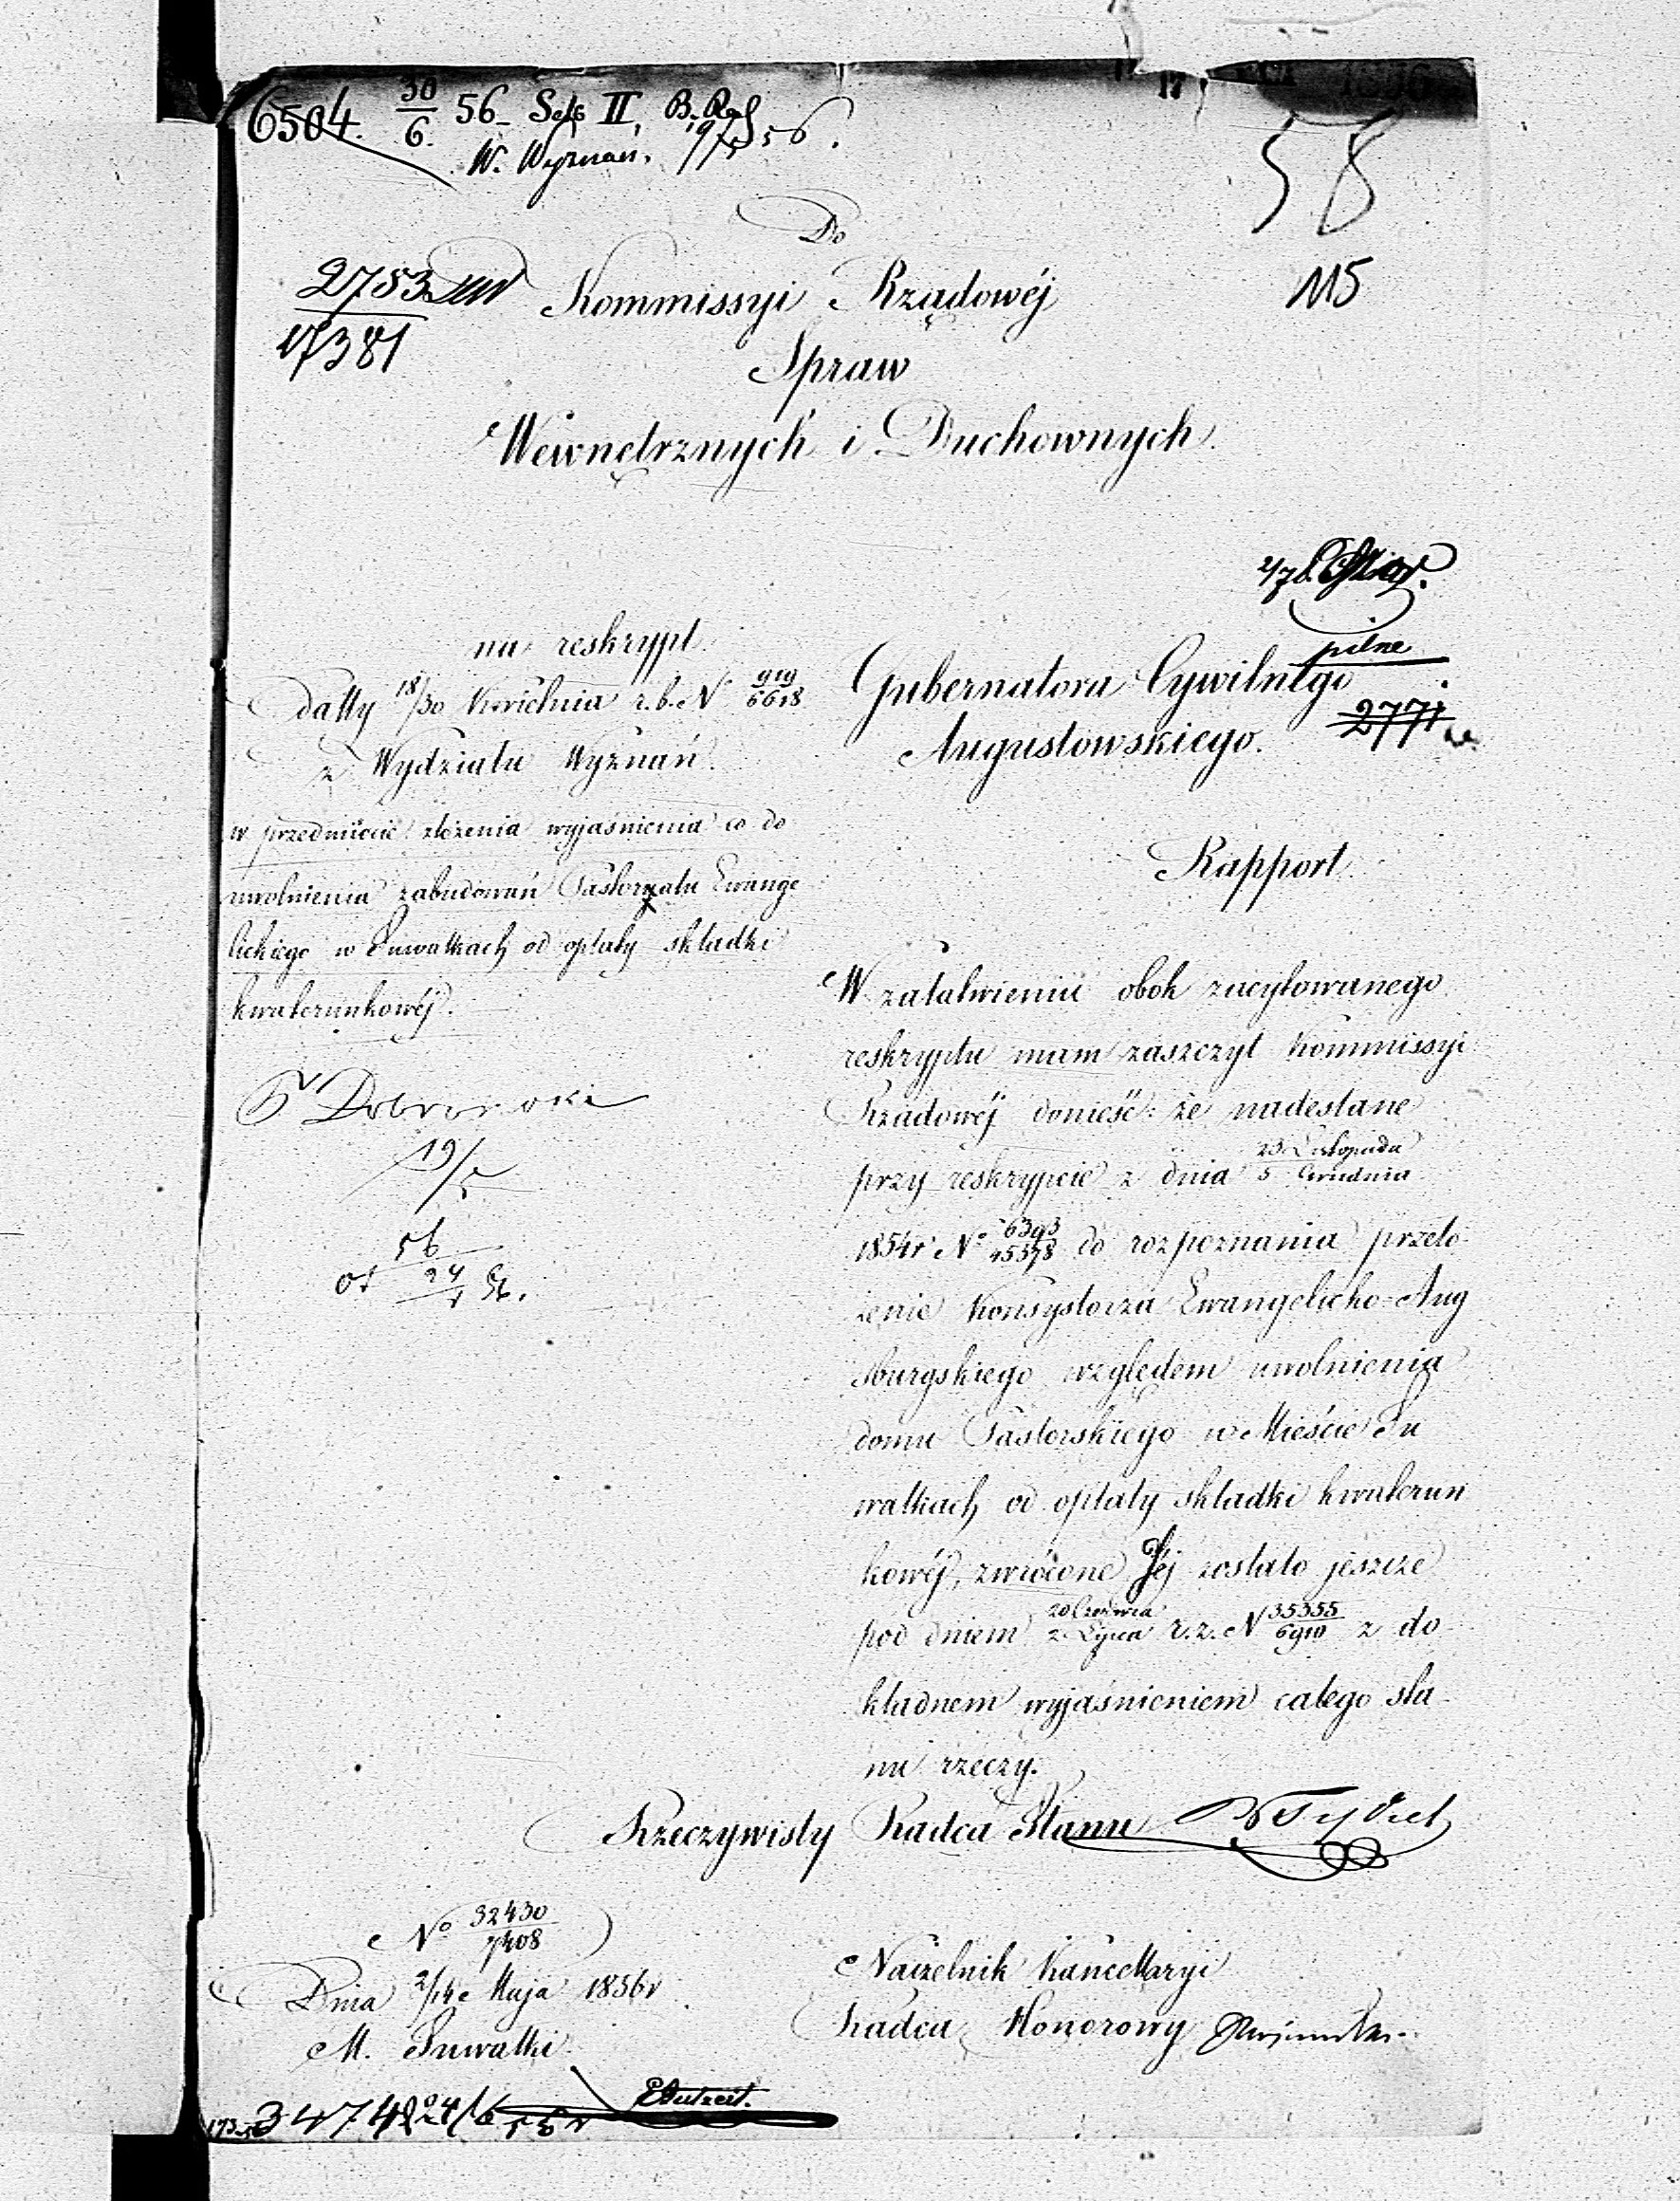 6504. 30/6. 56 Sek II.
W. Wyznań. 19/5 56.
58
Do
2783
17381
Kommissyi Rządowéj
115
Spraw
Wewnętrznych i Duchownych.
pilne
na reskrypt
datty 18/30 Kwietnia r. b. N 919/6618
z Wydziału Wyznań.
w przedmiocie złożenia wyjaśnienia co do
uwolnienia zabudowań Pastoratu Ewange
lickiego w Suwałkach od opłaty składki
kwaterunkowéj.
19/5
56
24/5 56.
Gubernatora Cywilnego
2771
Augustowskiego.
Rapport
W załatwieniu obok zacytowanego
reskryptu mam zaszczyt Kommissyi
Rządowéj donieść: że nadesłane
przy reskrypcie z dnia 23 Listopada/5 Grudnia
1854r No 6393/45378 do rozpoznania przeło-
żenie Konsystorza Ewangelicko-Aug
sburgskiego względem uwolnienia
domu Pastorskiego w Mieście Su
wałkach od opłaty składki kwaterun
kowéj, zwrócone Jéj zostało jeszcze
pod dniem 20 Czerwca/2 Lipca r. z. N 35355/6910 z do-
kładnem wyjaśnieniem całego sta-
nu rzeczy.
Rzeczywisty Radca Stanu
No 32430/7408
Dnia 2/14 Maja 1856r
M. Suwałki.
Naczelnik Kancellaryi
Radca Honorowy